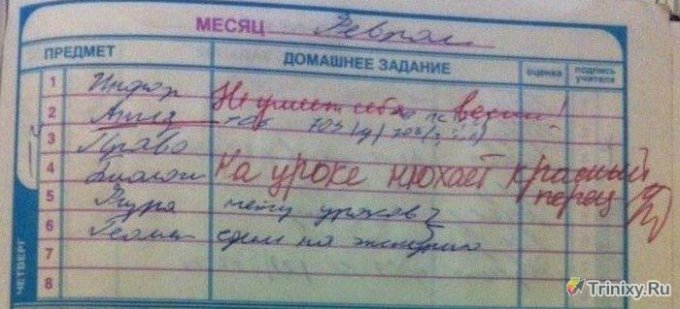 МЕСЯЦ Феврал
ПРЕДМЕТ ДОМАШНЕЕ ЗАДАНИЕ оценка подпись учителя
1 Инфор Не умеет себя вести!
2 Алгед
3 Право
4 Биологи На уроке нюхает красный перец
5 Физра нету уроков
6 Геомет
7
8
ЧЕТВЕРГ
Trinixy.Ru